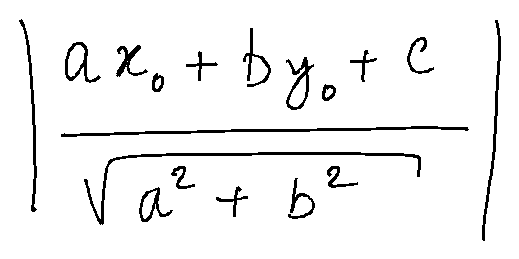 | (ax₀ + by₀ + c) / √(a² + b²) |